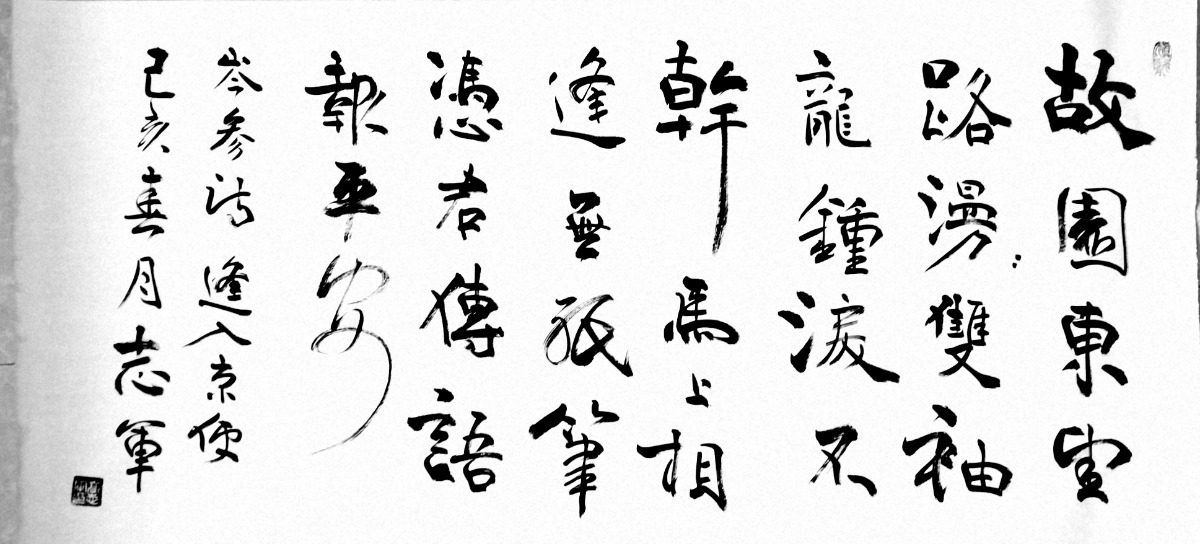 故園東望
路漫〻雙袖
龍鍾淚不
幹馬上相
逢無紙筆
憑君傳語
報平安
岑參詩逢入京使
己亥春月志軍